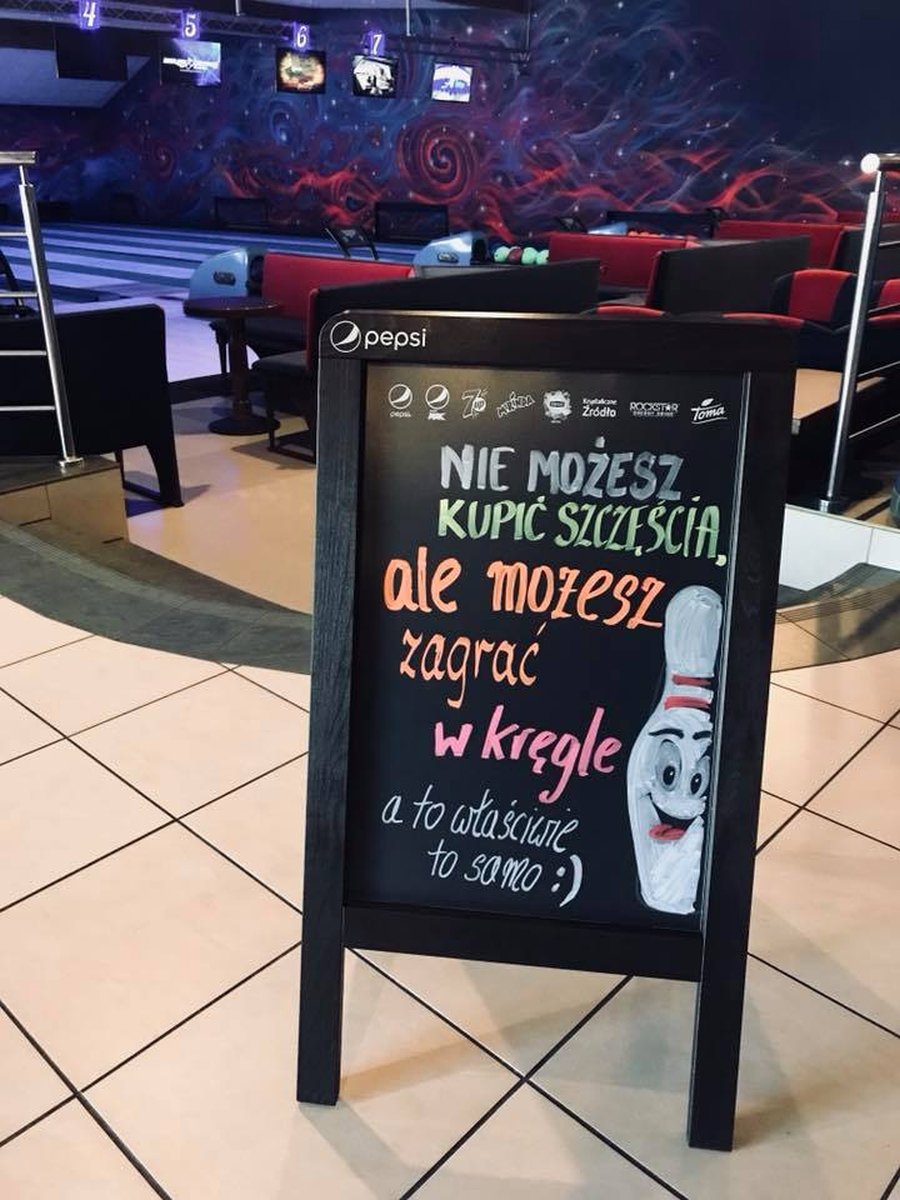 4
5
6
7
pepsi
pepsi
7up
MIRINDA
Krystaliczne
Źródło
ROCKSTAR
ENERGY DRINK
Toma
NIE MOŻESZ
KUPIĆ SZCZĘŚCIA,
ale możesz
zagrać
w kręgle
a to właściwie
to samo :)